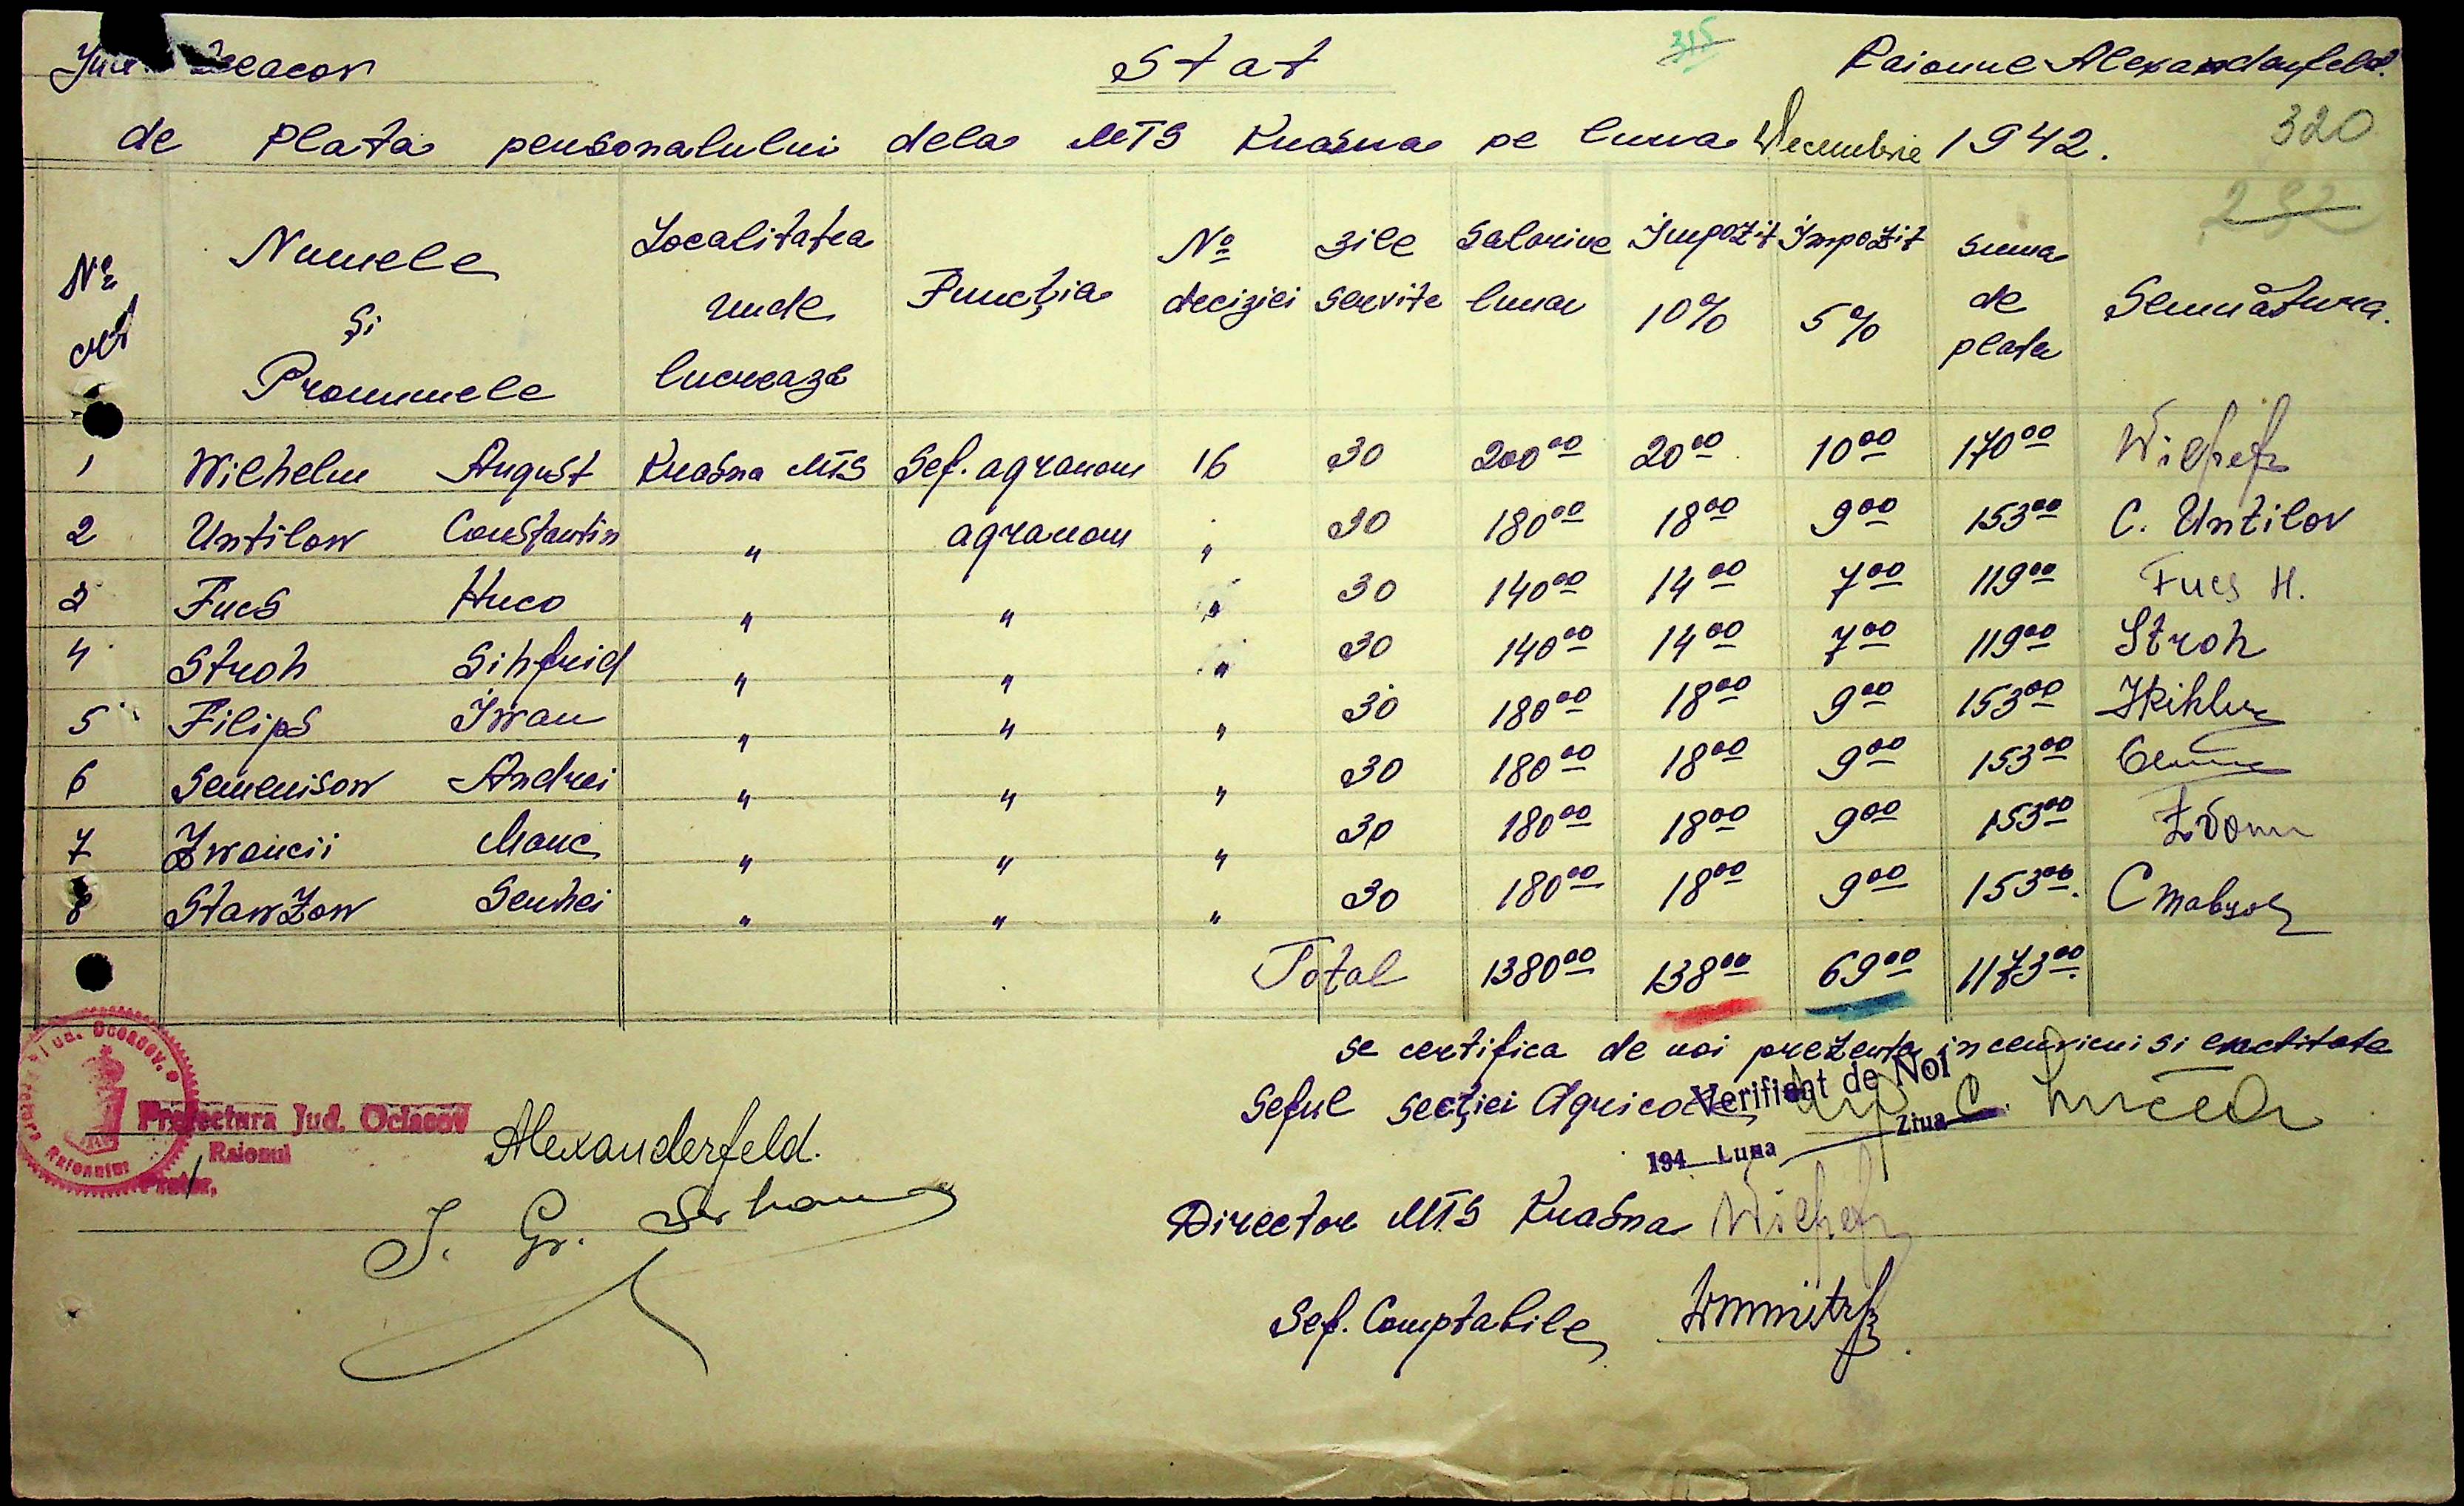 315
Stat
Raionul Alexandarfeld.
de Plata personalului dela MTS Krasna pe luna Decembrie 1942.
320
292
No crt
Numele și Pronumele
Localitatea unde lucreaza
Funcția
No deciziei
zile servite
Salariul lunar
Impozit 10%
Impozit 5%
suma de plata
Semnătura.
1 Wilhelm August Krasna MTS Sef. agronom 16 30 200 00 20 00 10 00 170 00
2 Untilow Constantin " agronom " 30 180 00 18 00 9 00 153 00 C. Untilov
3 Fucs Huco " " " 30 140 00 14 00 7 00 119 00 Fucs H.
4 Stroh Sihfrid " " " 30 140 00 14 00 7 00 119 00 Stroh
5 Filips Iwan " " " 30 180 00 18 00 9 00 153 00
6 Semenisow Andrei " " " 30 180 00 18 00 9 00 153 00
7 Marc " " " 30 180 00 18 00 9 00 153 00
8 Stawzow Serhei " " " 30 180 00 18 00 9 00 153 00. Ставзов
Total 1380 00 138 00 69 00 1173 00.
se certifica de noi prezenta si
Seful secției Agricole
Verificat de Noi
194 Luna Ziua
Jud. Oceacov.
Prefectura Jud. Ociacov
Raionul
Pretor,
Alexanderfeld.
Director MTS Krasna
Sef. Comptabile